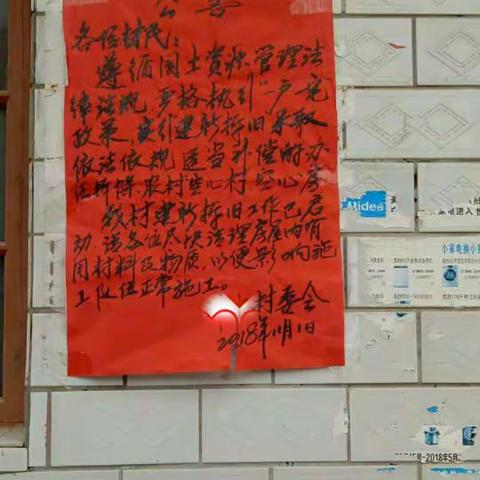 公告
各位村民：
遵循国土资源管理法
律法规，严格执行“一户一宅”
政策，实行建新拆旧采取
依法依规适当补偿的办
法拆除农村空心村空心房
我村建新拆旧工作已启
动，请各位尽快清理房屋内有
用材料及物质，以便影响施
工队伍正常施工。
村委会
2018年11月1日
Midea
小家电换小家
号-2018年5月2